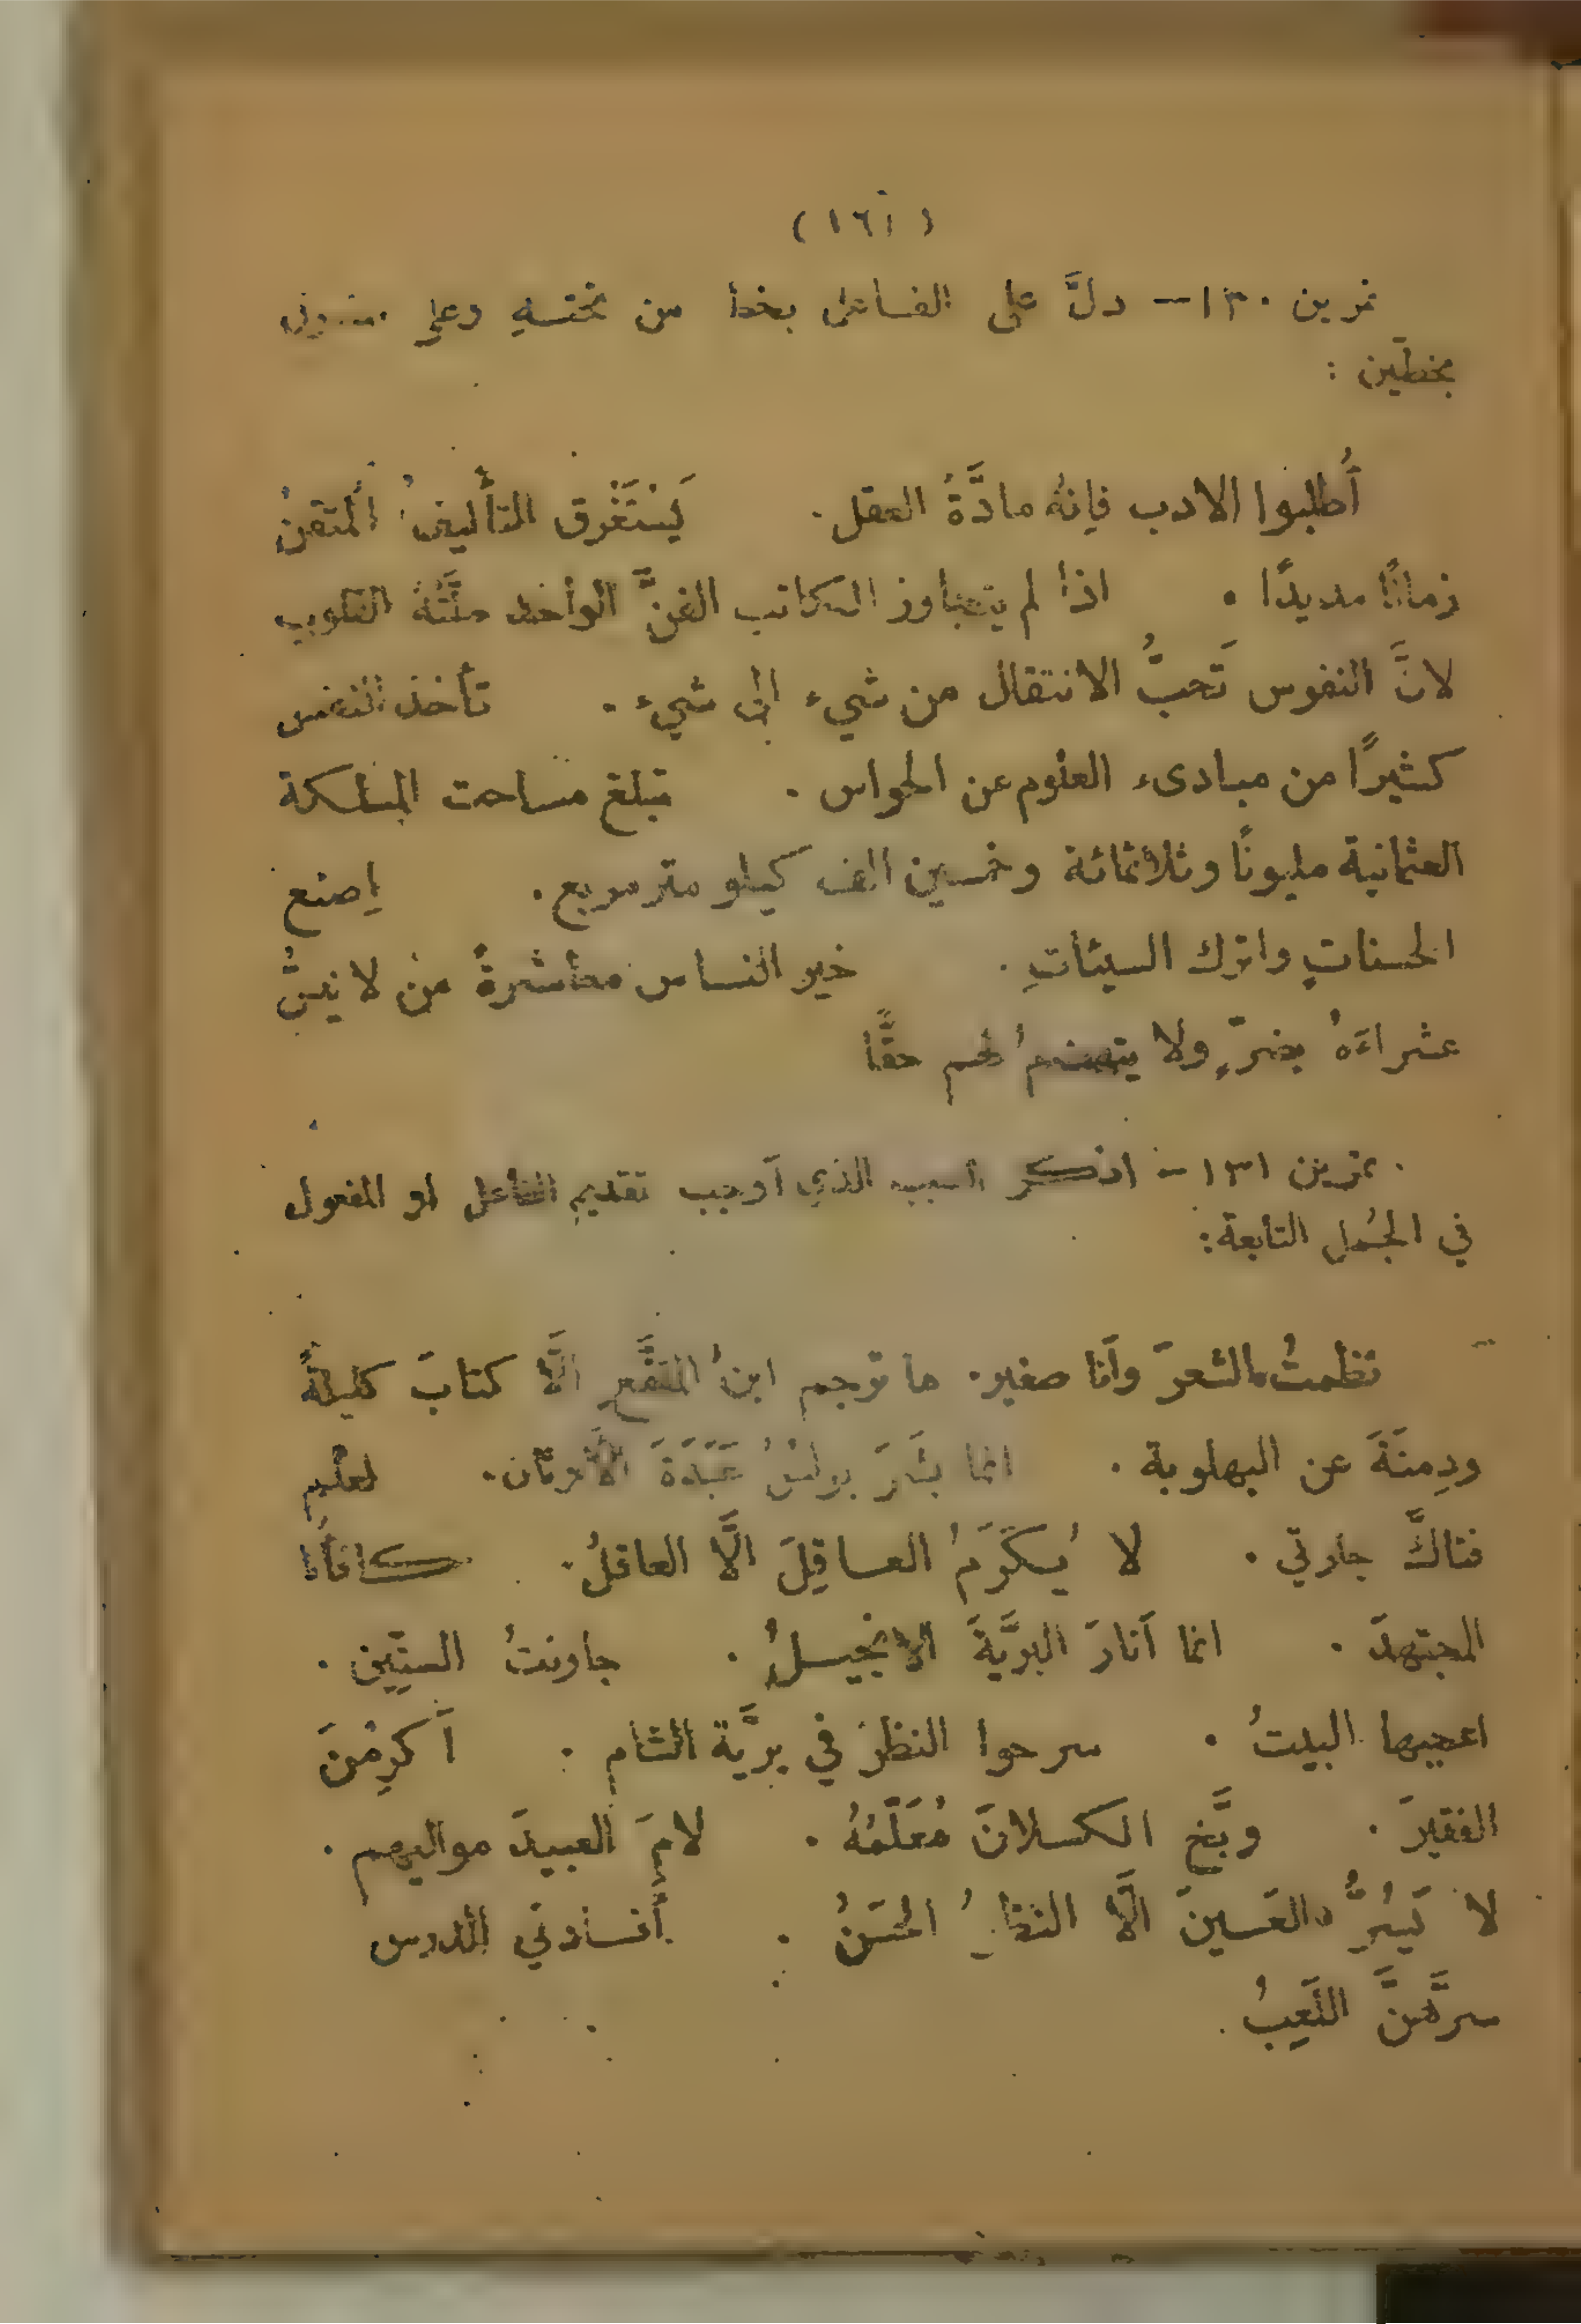 (١٦١)
تمرين ١٣٠ – دلَّ على الفاعل بخط من تحته وعلى
بخطَّين :
أُطلبوا الادب فإِنهُ مادَّةُ العقل . يَسْتَغْرق التأليفُ المتقنُ
زمانًا مديدًا . اذا لم يتجاوز الكاتب الفنَّ الواحد ملَّتهُ القلوب
لانَّ النفوس تُحبُّ الانتقال من شيء الى شيء . تأخذ النفس
كثيرًا من مبادىء العلوم عن الحواس . تبلغ مساحة المملكة
العثمانية مليونًا وثلاثمائة وخمسين الف كيلو متر مربع . إِصنع
الحسناتِ واترك السيئاتِ . خير الناس معاشرةً من لا
عشراءَهُ بضرٍّ ولا يهضمُ لهم حقًّا
تمرين ١٣١ – اذكر السبب الذي أوجب تقديم الفاعل او المفعول
في الجُمل التابعة :
نظمتُ الشعرَ وأَنا صغير . ما ترجم ابنُ المقفَّعِ الَّا كتابَ كليلةَ
ودِمنَةَ عن البهلوية . انما بشَّرَ بولسُ عَبَدَةَ الأَوثان . لعلم
فتاكَ جارتي . لا يُكرِّمُ العاقِلَ الَّا العاقلُ . كافأَا
المجتهدَ . انما أَنارَ البريَّةَ الانجيلُ . جاوزتُ الستِّين .
اعجبها البيتُ . سرحوا النظرَ في بريَّة الشام . أَكرِمْنَ
الفقيرَ . وبَّخ الكسلانَ مُعَلِّمُهُ . لامَ العبيدَ مواليهم .
لا يَسُرُّ العَينَ الَّا النظرُ الحَسَنُ . أَفادني الدرس
سرَّهنَّ اللَعِبُ .